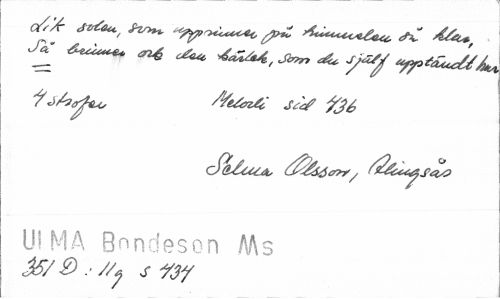 Lik solen, som upprinner på himmelen så klar,
Så brinner ock den kärlek, som du själf upptändt har
4 strofer Melodi sid 436
Selma Olsson, Alingsås
ULMA Bondeson Ms
351 D : 11q s 434